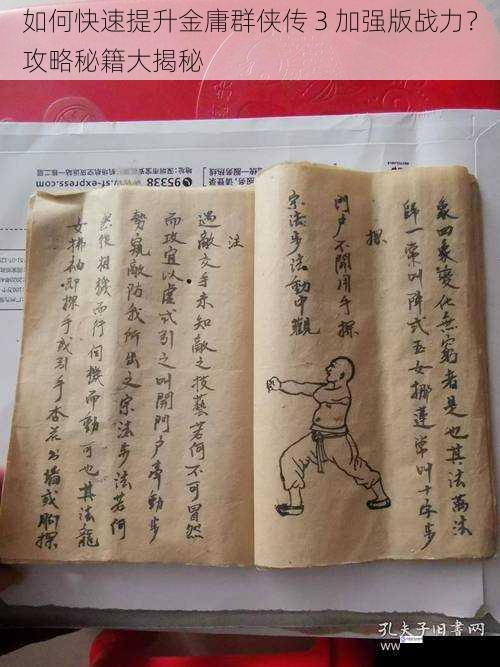 如何快速提升金庸群侠传 3 加强版战力？
攻略秘籍大揭秘
95338
象四象变化無窮者是也其法萬法
歸一常叫陣式玉女挪蓮常叫十字步
探
門户不開用手探
宗法步法動中觀
注
遇敵交手未知敵之技藝若何不可冒然
而攻宜以虚式引之叫開門户牽動步
勢窺敵防我所出之宗法步法若何
然後相機而行伺機而動可也其法龍
女拂袖即探手或引手杏花出墙或脚探
孔夫子旧書网
www